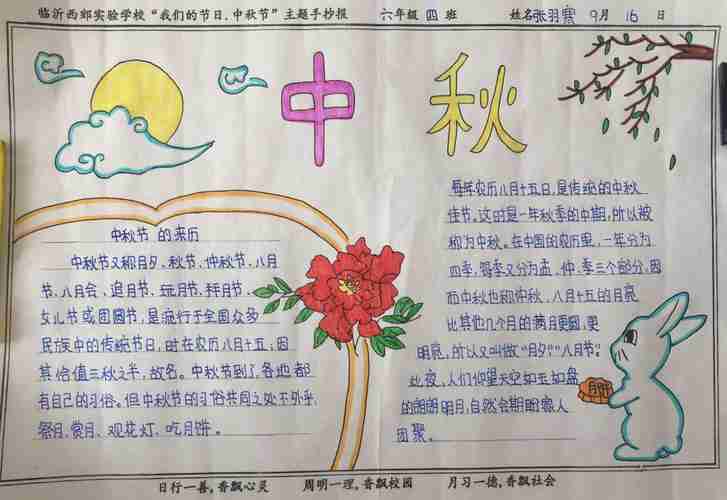 临沂西郊实验学校“我们的节日.中秋节”主题手抄报 六年级 四 班 姓名张羽骞 9月 16 日
中秋
中秋节 的来历
中秋节又称月夕、秋节、仲秋节、八月
节、八月会、追月节、玩月节、拜月节、
女儿节或团圆节，是流行于全国众多
民族中的传统节日，时在农历八月十五；因
其恰值三秋之半，故名。中秋节到了各地都
有自己的习俗。但中秋节的习俗共同之处不外乎
祭月、赏月、观花灯、吃月饼。
每年农历八月十五日，是传统的中秋
佳节。这时是一年秋季的中期，所以被
称为中秋。在中国的农历里，一年分为
四季，每季又分为孟、仲、季三个部分，因
而中秋也称仲秋。八月十五的月亮
比其他几个月的满月更圆，更
明亮，所以又叫做“月夕”“八月节”。
此夜，人们仰望天空如玉如盘
的朗朗明月，自然会期盼家人
团聚。
月饼
日行一善，香飘心灵 周明一理，香飘校园 月习一德，香飘社会